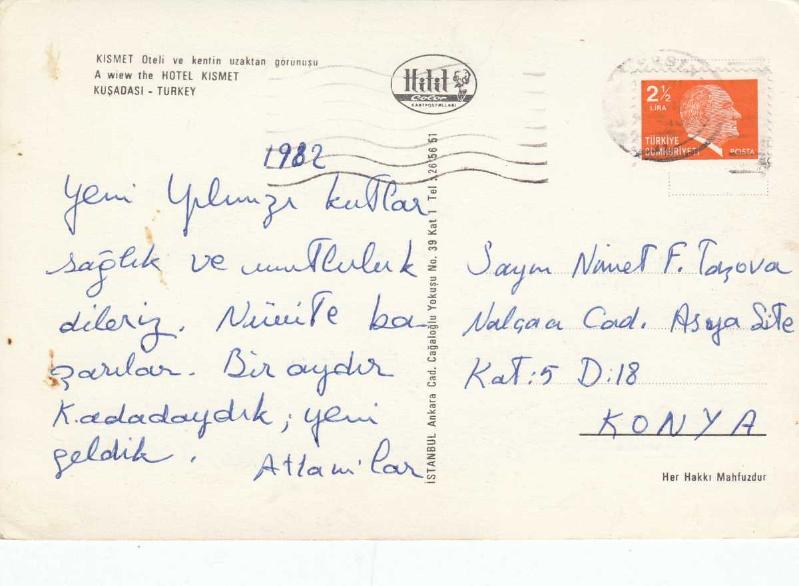 KISMET Oteli ve kentin uzaktan görünüşü
A wiew the HOTEL KISMET
KUŞADASI - TURKEY
Hitit
Color
KARTPOSTALLARI
2 ½
LİRA
TÜRKİYE
CUMHURİYETİ
POSTA
1982
Yeni Yılınızı kutlar
sağlık ve mutluluk
dileriz.
başarılar. Bir aydır
K.adadaydık, yeni
geldik.
İSTANBUL Ankara Cad. Cağaloğlu Yokuşu No. 39 Kat 1 Tel : 26 56 51
Sayın Nimet F. Taşova
Nalçacı Cad. Asya Site
Kat:5 D:18
KONYA
Her Hakkı Mahfuzdur